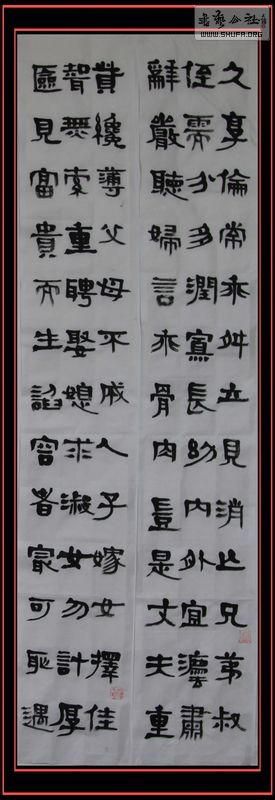 書藝公社
WWW.SHUFA.ORG
久享倫常乖舛立見消亡兄弟叔
侄需分多潤寡長幼內外宜灋肅
辭嚴聽婦言乖骨肉豈是丈夫重
貲纔薄父母不成人子嫁女擇佳
聟無索重聘娶媳求淑女勿計厚
匳見富貴而生諂容者最可恥遇